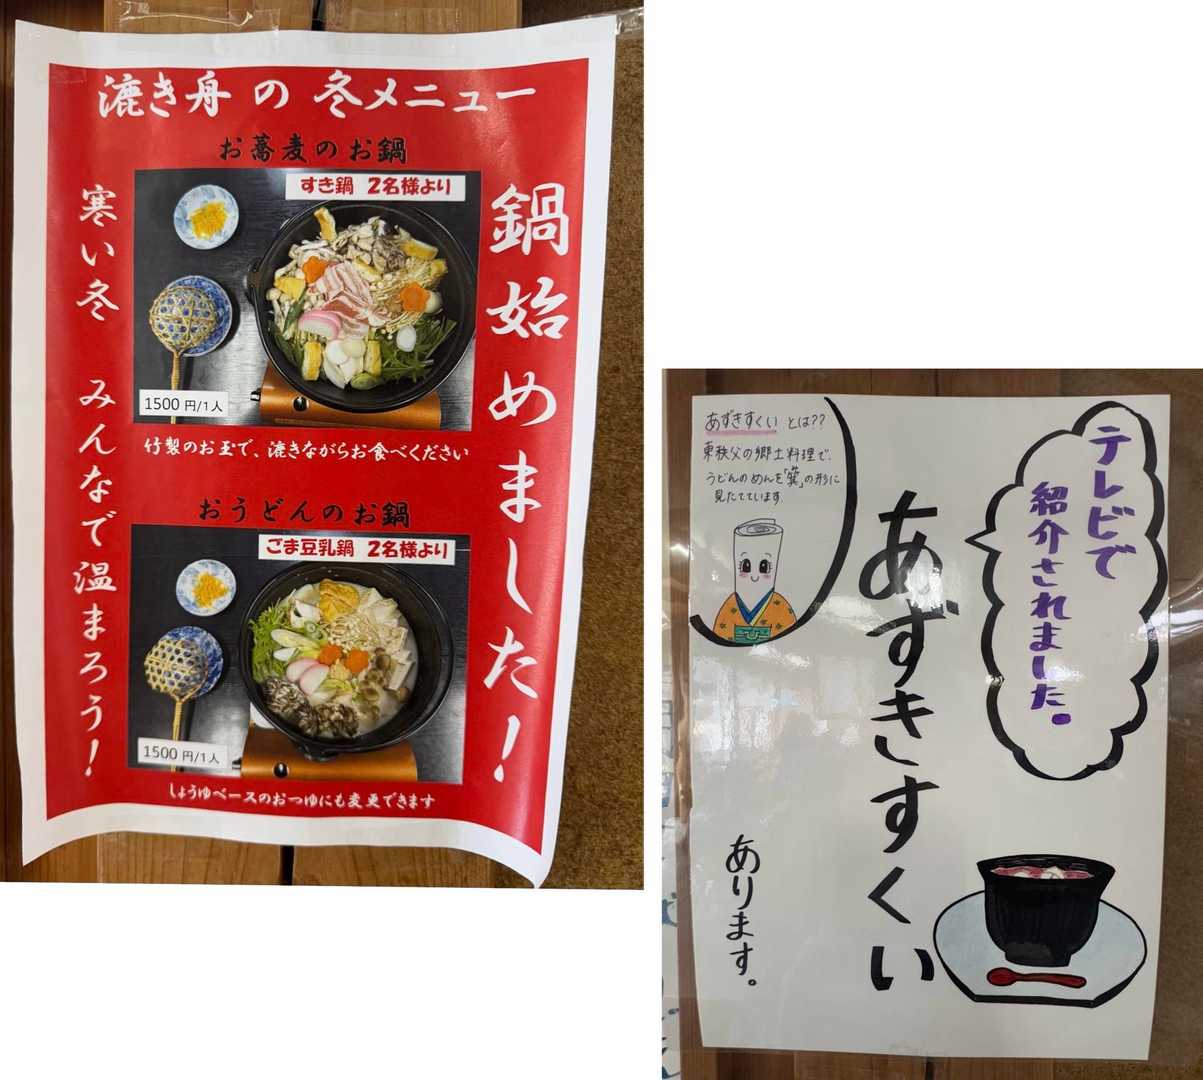 漉き舟 の 冬メニュー
お蕎麦のお鍋
すき鍋 2名様より
1500 円/1人
竹製のお玉で、漉きながらお食べください
おうどんのお鍋
ごま豆乳鍋 2名様より
1500 円/1人
しょうゆベースのおつゆにも変更できます
鍋始めました!
寒い冬 みんなで温まろう!
テレビで
紹介されました。
あずきすくい
あります。
あずきすくい とは??
東秩父の郷土料理で、
うどんのめんを「箕」の形に
見たてています。